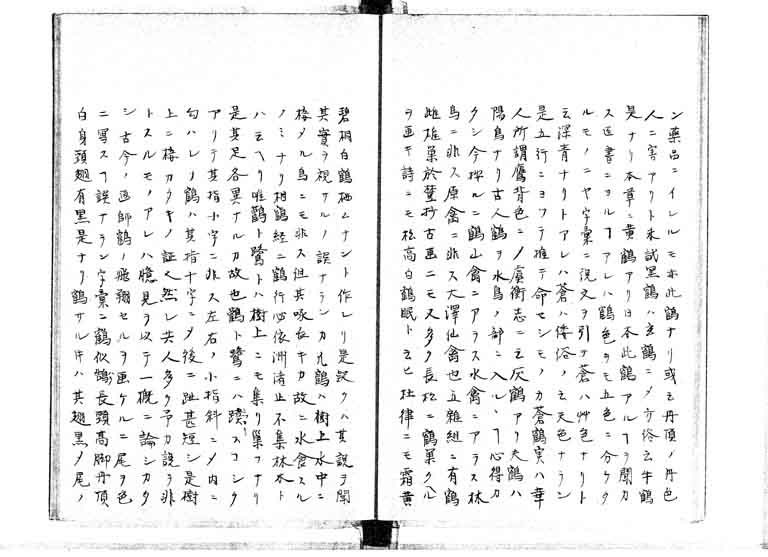 ン薬品ニイレルモ亦此鶴ナリ或云丹頂ノ丹色
人ニ害アリト未試黒鶴ハ玄鶴ニメ方俗云牛鶴
是ナリ本草ニ黄鶴アリ日本此鶴アルヿヲ聞カ
ス医書ニヨルヿアレハ鶴色ヲモ五色ニ分ケタ
ルモノニヤ字彙ニ説文ヲ引テ蒼ハ艸色ナリト
云深青ナリトアレハ蒼ハ倭俗ノ云天色ナラン
是五行ニヨフテ推テ命セシモノカ蒼鶴実ハ華
人所謂鷹背色ニメ虞衡志ニ云灰鶴アリ夫鶴ハ
陽鳥ナリ古人鶴ヲ水鳥ノ部ニ入ルヽヿ心得カ
タシ今按ルニ鶴山禽ニアラス水禽ニアラス林
鳥ニ非ス原禽ニ非ス大澤仙禽也五雜組ニ有鶴
雌雄巣於墓抄古画ニモ又多ク長松ニ鶴巣クル
ヲ画キ詩ニモ松高白鶴眠ト云ヒ杜律ニモ霜黄
碧梧白鶴栖ムナント作レリ是訳クハ其説ヲ聞
其實ヲ視サルノ誤ナランカ凡鶴ハ樹上水中ニ
棲メル鳥ニモ非ス但其啄長キカ故ニ水食スル
ノミナリ相鶴経ニ鶴行必依洲渚止不集林木ト
ハ云ヘリ唯鸛ト鷺トハ樹上ニモ集リ巣フナリ
是其足各異ナルカ故也鸛ト鷺ニハ蹼スコシク
アリテ其指小字ニ非ス左右ノ小指斜ニメ内ニ
勾ハレリ鶴ハ其指十字ニメ後ニ趾甚短シ是樹
上ニ棲カタキノ証乄然レ共人多ク予カ説ヲ非
トスルモノアレハ臆見ヲ以テ一概ニ論シカタ
シ古今ノ画師鶴ノ飛翔セルヲ画ケルニ尾ヲ色
ニ写スヿ誤ナラン字彙ニ鶴似鵠長頸高脚丹頂
白身頸翅有黒是ナリ鶴サルキハ其翅黒メ尾ノ